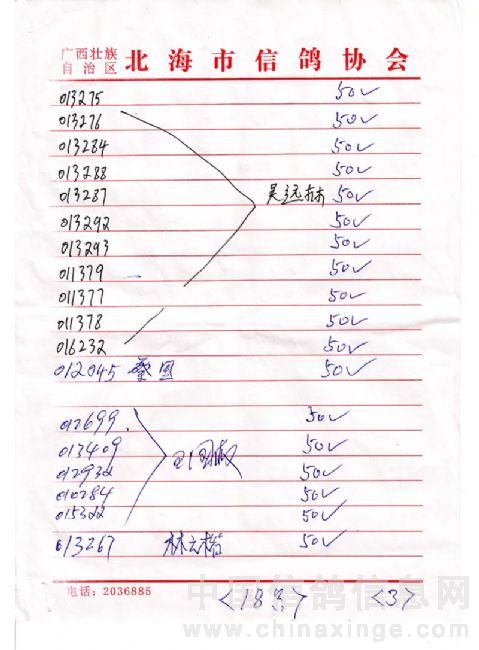 广西壮族
自治区
北海市信鸽协会
013275 50✓
013276 50✓
013284 50✓
013288 50✓
013287 吴远林 50✓
013292 50✓
013293 50✓
011379 50✓
011377 50✓
011378 50✓
016232 50✓
012045 50✓
012699 50✓
013409 50✓
012932 50✓
010284 50✓
015322 50✓
013267 50✓
电话：2036885
<3>
中国信鸽信息网
www.chinaxinge.com